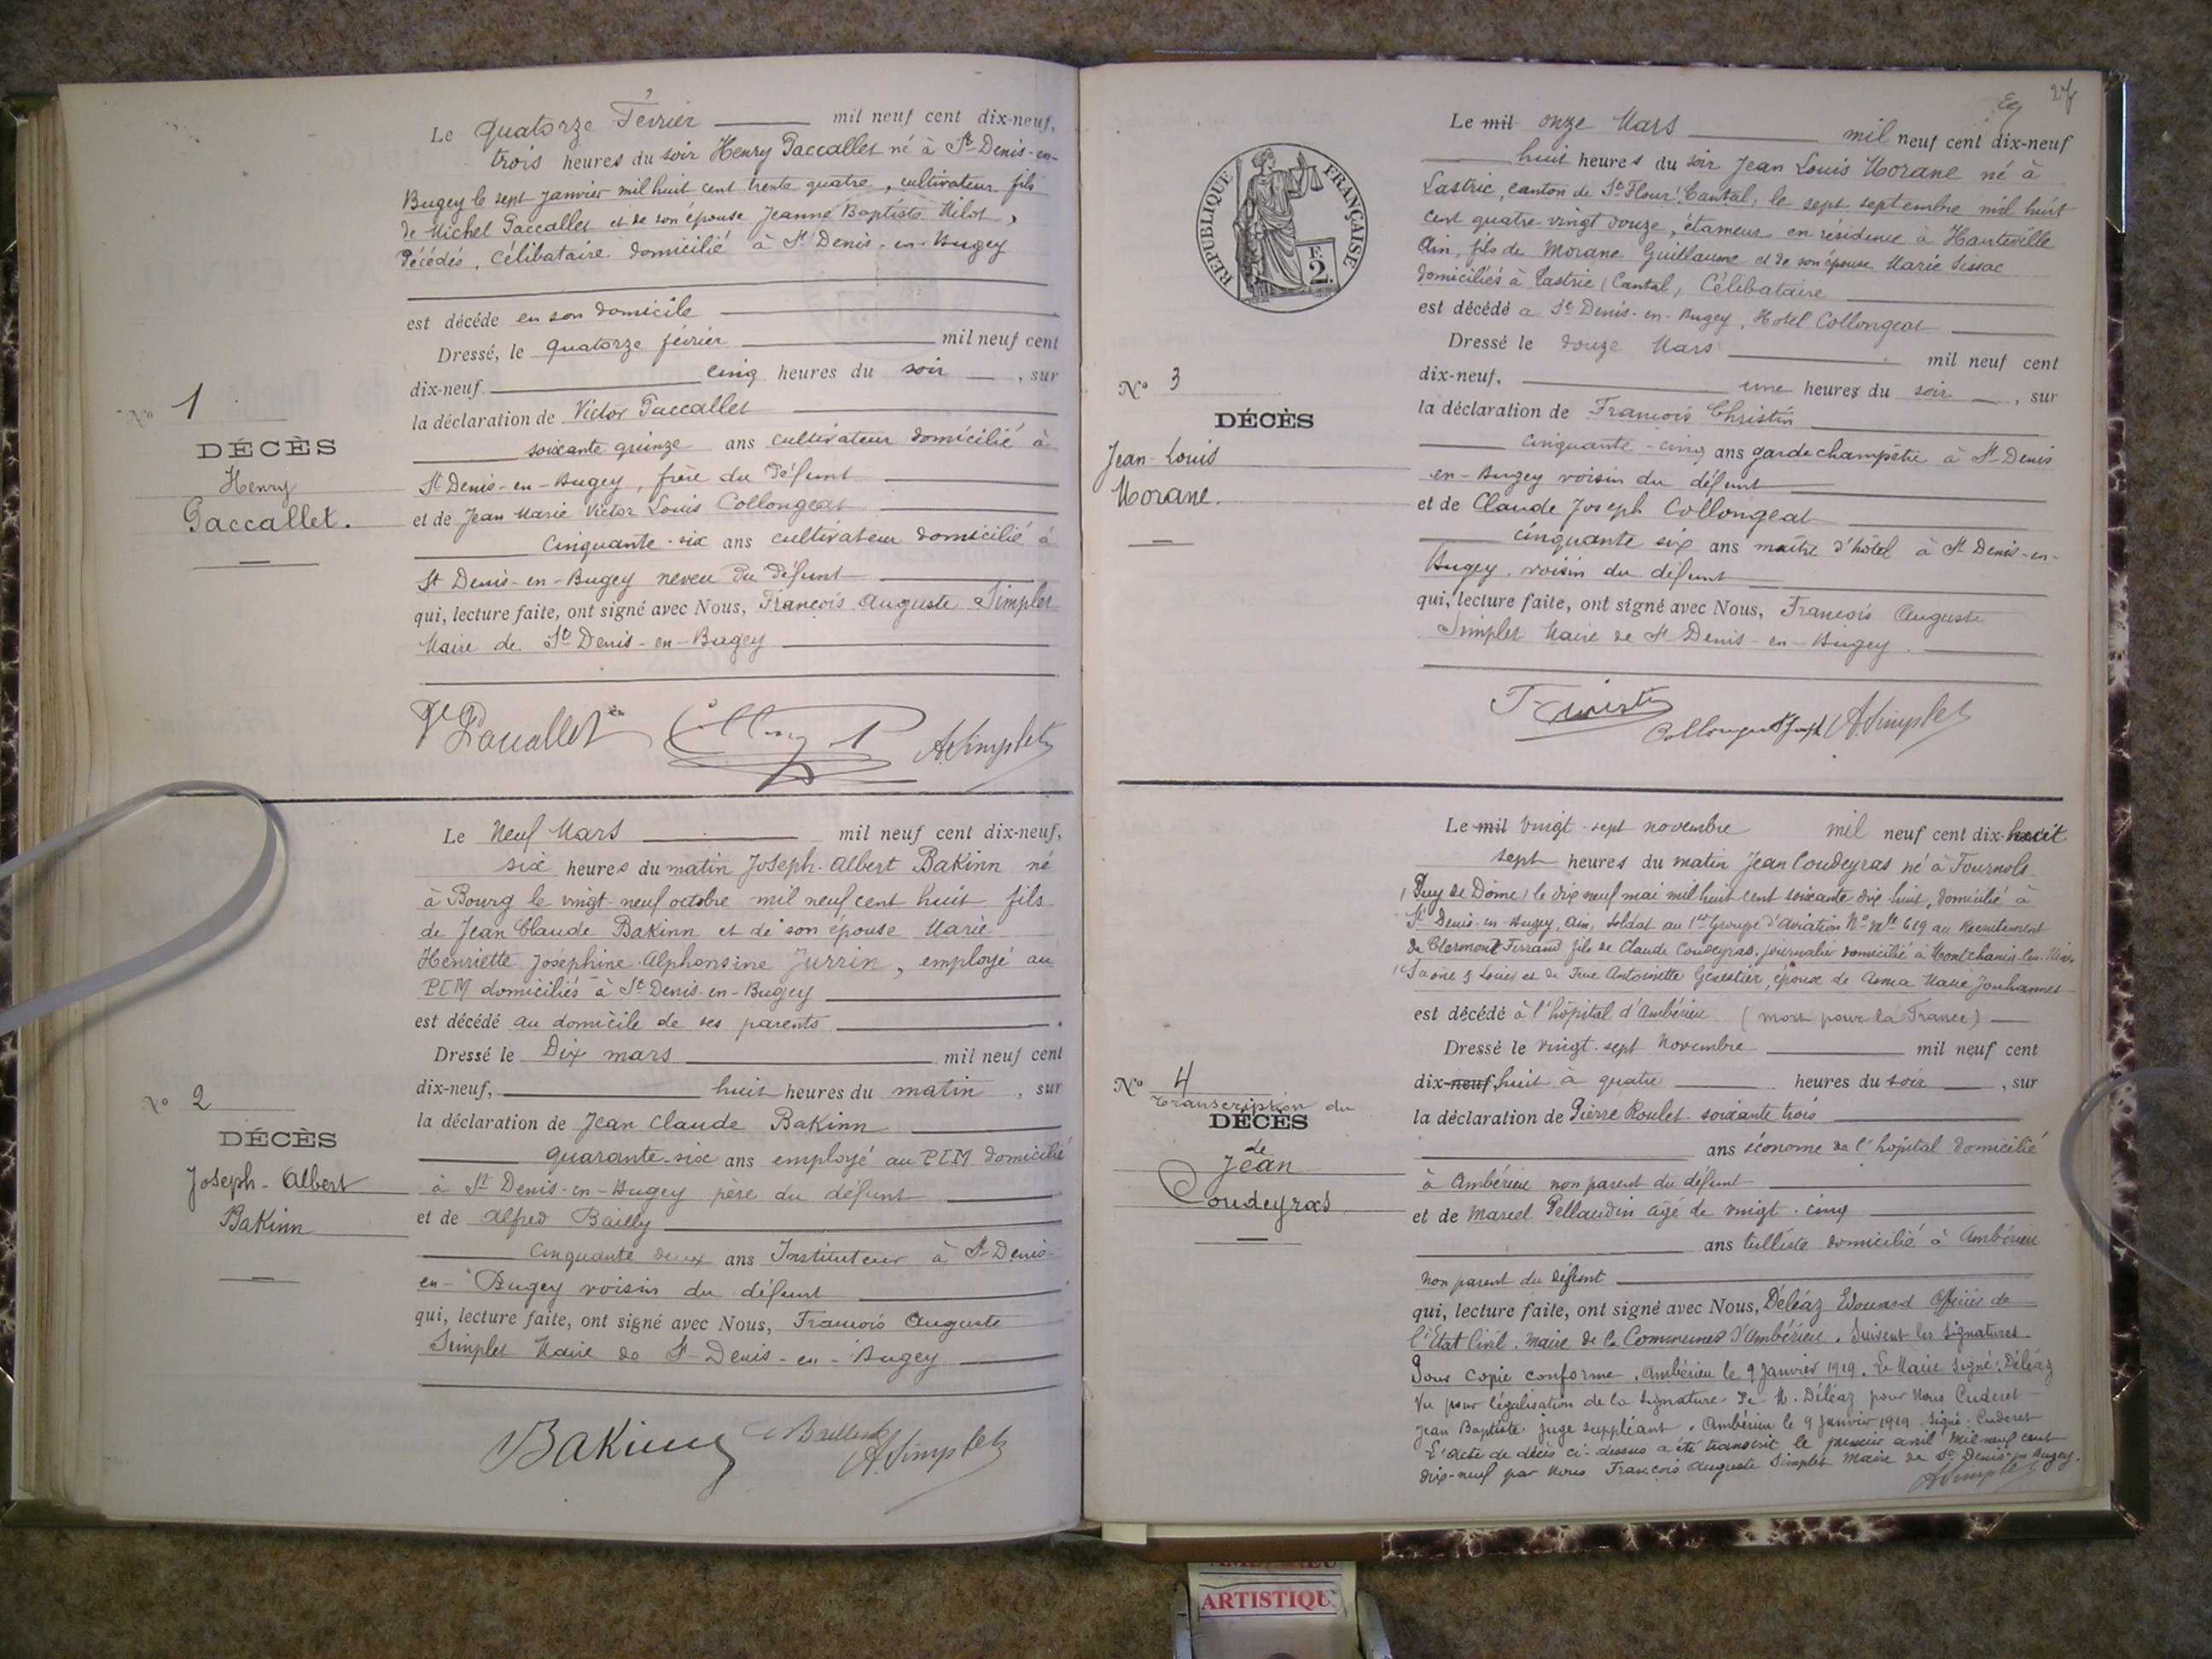 Le quatorze Février mil neuf cent dix-neuf,
trois heures du soir Henry Paccallet né à St Denis-en-
Bugey le sept Janvier mil huit cent trente quatre, cultivateur fils
de Michel Paccallet et de son épouse Jeanne Baptiste Milot,
décédés, Célibataire domicilié à St Denis-en-Bugey
est décédé en son domicile
Dressé, le quatorze février mil neuf cent
dix-neuf cinq heures du soir, sur
la déclaration de Victor Paccallet
soixante quinze ans cultivateur domicilié à
St Denis-en-Bugey, frère du défunt
et de Jean Marie Victor Louis Collongeat
Cinquante-six ans cultivateur domicilié à
St Denis-en-Bugey neveu du défunt
qui, lecture faite, ont signé avec Nous, François Auguste Simplet
Maire de St Denis-en-Bugey
No 1
DÉCÈS
Henry
Paccallet.
Paccallet A. Simplet
Le Neuf Mars mil neuf cent dix-neuf,
six heures du matin Joseph-Albert Bakinn né
à Bourg le vingt-neuf octobre mil neuf cent huit fils
de Jean Claude Bakinn et de son épouse Marie
Henriette Joséphine Alphonsine Jurrin, employé au
PLM domiciliés à St Denis-en-Bugey
est décédé au domicile de ses parents
Dressé le Dix mars mil neuf cent
dix-neuf, huit heures du matin, sur
la déclaration de Jean Claude Bakinn
quarante-six ans employé au PLM domicilié
à St Denis-en-Bugey père du défunt
et de Alfred Bailly
Cinquante deux ans Instituteur à St Denis-
en-Bugey voisin du défunt
qui, lecture faite, ont signé avec Nous, François Auguste
Simplet Maire de St Denis-en-Bugey
No 2
DÉCÈS
Joseph-Albert
Bakinn
Bakinn A. Simplet
27
Le mil onze Mars mil neuf cent dix-neuf
huit heures du soir Jean Louis Morane né à
Lastric, canton de St Flour, Cantal, le sept septembre mil huit
cent quatre vingt douze, étameur en résidence à Hauteville
Ain, fils de Morane Guillaume et de son épouse Marie Sissac
domiciliés à Lastric (Cantal) Célibataire
est décédé à St Denis-en-Bugey, Hotel Collongeat
Dressé le douze Mars mil neuf cent
dix-neuf, une heures du soir, sur
la déclaration de François Christin
cinquante-cinq ans garde champêtre à St Denis
en-Bugey voisin du défunt
et de Claude Joseph Collongeat
cinquante six ans maître d'hôtel à St Denis-en-
Bugey, voisin du défunt
qui, lecture faite, ont signé avec Nous, François Auguste
Simplet Maire de St Denis-en-Bugey.
RÉPUBLIQUE FRANÇAISE
F.
2.
No 3
DÉCÈS
Jean-Louis
Morane.
Collongeat Joseph A. Simplet
Le mil vingt-sept novembre mil neuf cent dix-huit
sept heures du matin Jean Coudeyras né à Fournols
(Puy de Dôme) le dix neuf mai mil huit cent soixante dix huit, domicilié à
St Denis-en-Bugey, Ain, soldat au 1er Groupe d'Aviation No Mle 619 au Recrutement
de Clermont Ferrand fils de Claude Coudeyras, journalier domicilié à Montchanin-les-Mines
(Saône & Loire) et de Feue Antoinette Genestier, époux de Anna Marie Jouhannet
est décédé à l'hôpital d'Ambérieu (mort pour la France)
Dressé le vingt-sept Novembre mil neuf cent
dix-neuf, huit à quatre heures du soir, sur
la déclaration de Pierre Roulet soixante trois
ans économe de l'hôpital domicilié
à Ambérieu non parent du défunt
et de Marcel Pellaudin agé de vingt-cinq
ans tulliste domicilié à Ambérieu
non parent du défunt
qui, lecture faite, ont signé avec Nous, Déléaz Edouard Officier de
l'Etat Civil, Maire de la Communes d'Ambérieu. Suivent les signatures
Pour copie conforme. Ambérieu le 9 Janvier 1919. Le Maire signé: Déléaz
Vu pour légalisation de la signature de M. Déléaz pour Nous Cuderet
Jean Baptiste juge suppléant. Ambérieu le 9 Janvier 1919. Signé: Cuderet
L'acte de décès ci-dessus a été transcrit le premier avril mil neuf cent
dix-neuf par Nous François Auguste Simplet Maire de St Denis-en-Bugey.
A. Simplet
No 4
Transcription du
DÉCÈS
de
Jean
Coudeyras
ARTISTIQU